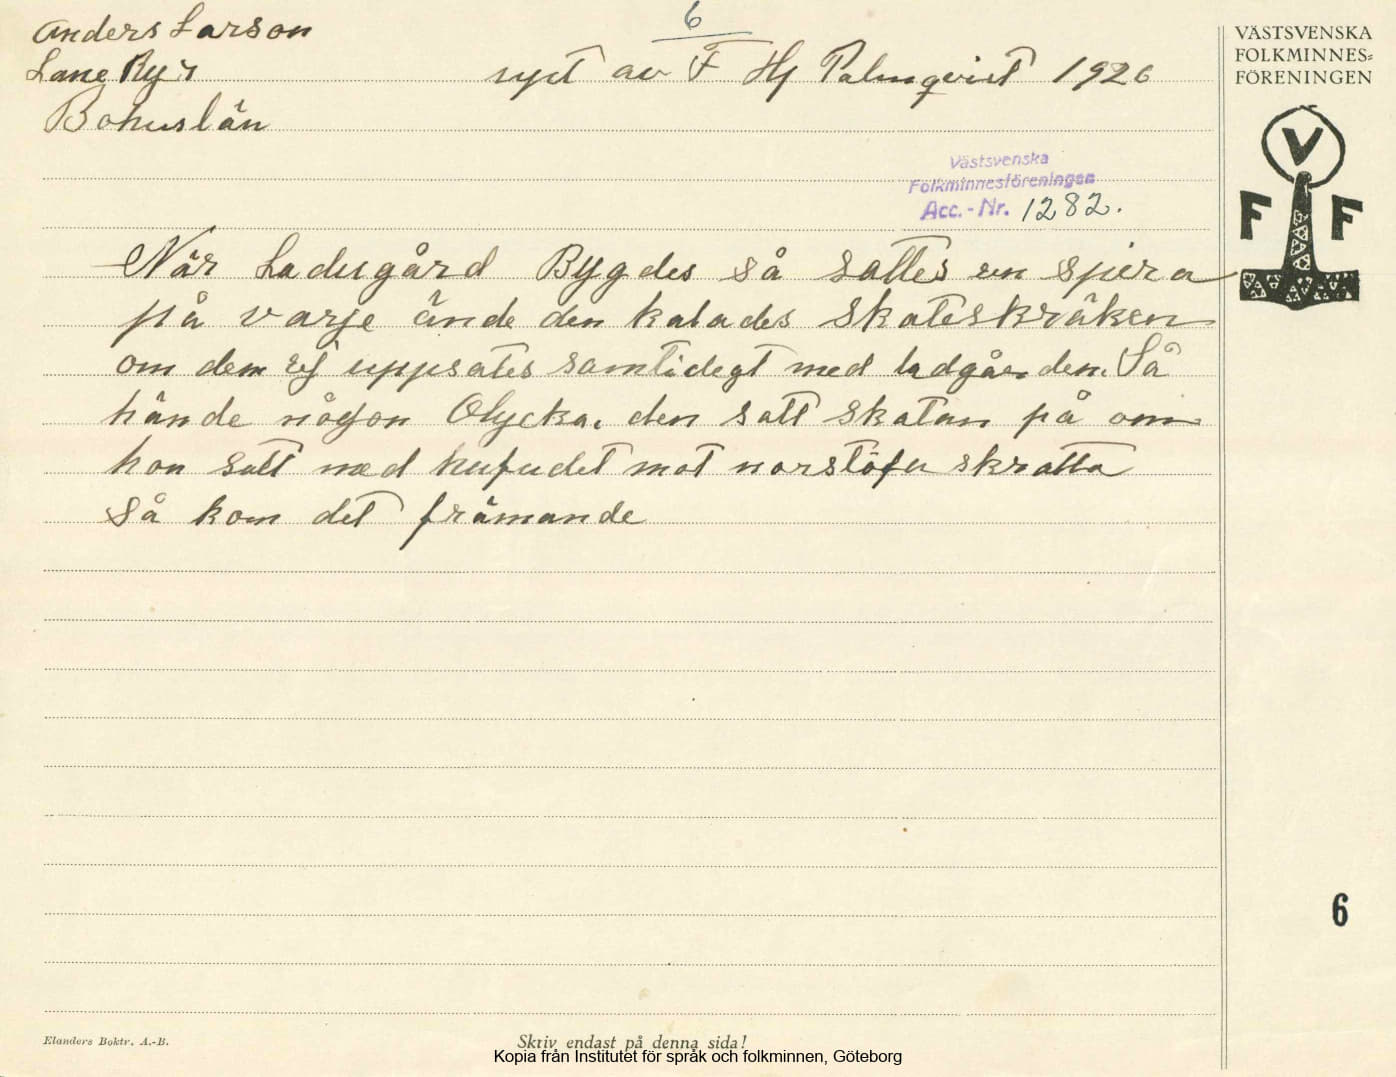 6
Anders Larson
Lane Ryr
Bohuslän
av F Hj Palmqvist 1926
VÄSTSVENSKA
FOLKMINNES-
FÖRENINGEN
V
F F
Västsvenska
Folkminnesföreningen
Acc.-Nr. 1282.
När Ladugård Bygdes så sattes en spira
på varje ände den kalades Skateskråken
om dem ej uppsates samtidegt med ladgården. Så
hände någon Olycka. den satt skatan på om
hon satt med hufudet mot norstöfu skratta
så kom det främande
6
Elanders Boktr. A.-B.
Skriv endast på denna sida!
Kopia från Institutet för språk och folkminnen, Göteborg